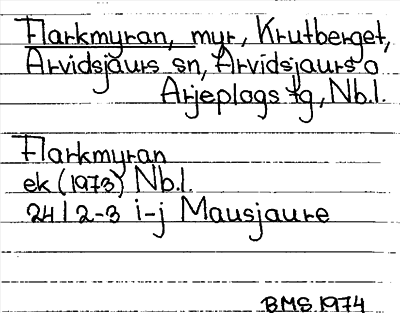 Flarkmyran, myr, Krutberget,
Arvidsjaurs sn, Arvidsjaurs o
Arjeplogs tg, Nb.l.
Flarkmyran
ek (1973) Nb.l.
24 I 2-3 i-j Mausjaure
BMS 1974